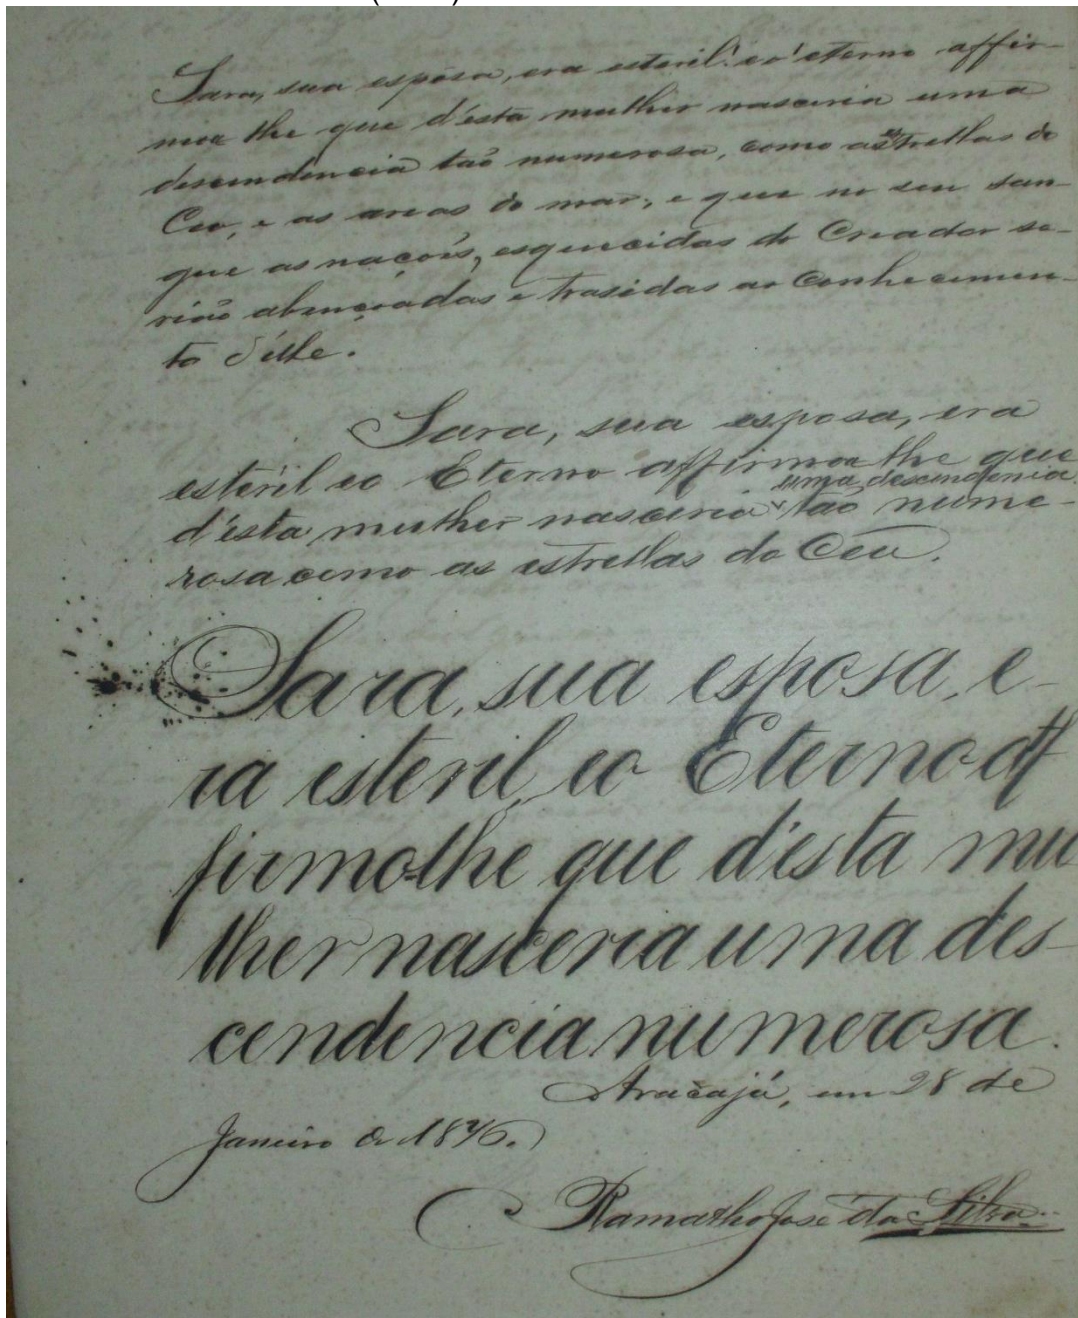 Sara, sua espôsa, era esteril: e o eterno affir-
mou lhe que d'esta mulher nasceria uma
descendencia taõ numerosa, como as estrellas do
Ceo, e as areas do mar, e que no seu san-
gue as nações, esquecidas do Creador se-
riaõ abençoadas e trasidas ao Conhecimen-
to d'elle.
Sara, sua esposa, era
esteril e o Eterno affirmou lhe que
d'ésta mulher nasceria uma descendencia taõ nume-
rosa como as estrellas do Ceu.
Sara, sua esposa, e-
ra esteril, e o Eterno af
firmo-lhe que d'ésta mu
lher nasceria uma des-
cendencia numerosa.
Aracajú, em 28 de
Janeiro de 1876.
Ramalho José da Silva